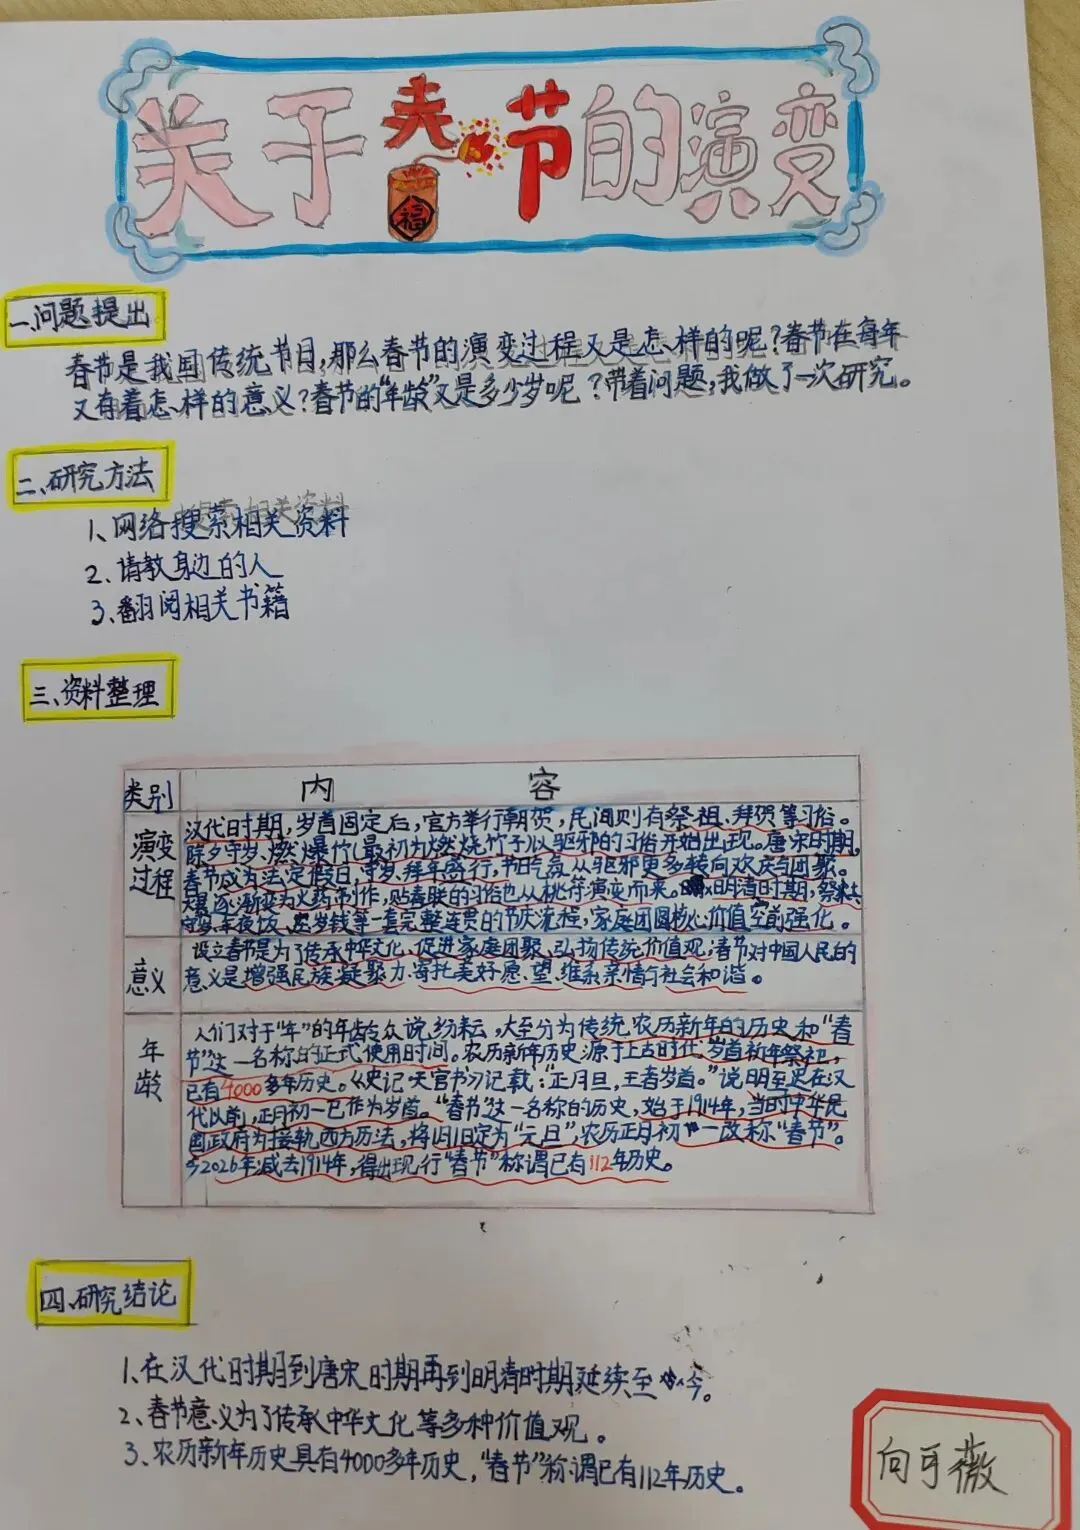 关于春节的演变
福
一、问题提出
春节是我国传统节日,那么春节的演变过程又是怎样的呢?春节在每年
又有着怎样的意义?春节的"年龄"又是多少岁呢?带着问题,我做了一次研究。
二、研究方法
1、网络搜索相关资料
2、请教身边的人
3、翻阅相关书籍
三、资料整理
类别 内容
演变过程
汉代时期,岁首固定后,官方举行朝贺,民间则有祭祖、拜贺等习俗。
除夕守岁、燃爆竹(最初为燃烧竹子)以驱邪的习俗开始出现。唐宋时期,
春节成为法定假日,守岁、拜年盛行,节日气氛从驱邪更多转向欢庆与团聚。
逐渐变为火药制作,贴春联的习俗也从桃符演变而来。明清时期,祭
守岁、年夜饭、压岁钱等一套完整连贯的节庆流程,家庭团圆核心价值空前强化。
意义
设立春节是为了传承中华文化、促进家庭团聚、弘扬传统价值观;春节对中国人民的
意义是增强民族凝聚力、寄托美好愿望、维系亲情与社会和谐。
年龄
人们对于"年"的年龄众说纷耘,大至分为传统农历新年的历史和"春
节"这一名称的正式使用时间。农历新年历史源于上古时代岁首祈年祭祀,
已有4000多年历史。《史记·天官书》记载:"正月旦,王者岁首。"说明至迟在汉
代以前,正月初一已作为岁首。"春节"这一名称的历史,始于1914年,当时中华民
国政府为接轨西方历法,将旧旧定为"元旦",农历正月初一改称"春节"。
2026年减去1914年,得出现行"春节"称谓已有112年历史。
四、研究结论
1、在汉代时期到唐宋时期再到明清时期延续至今。
2、春节意义为了传承中华文化等多种价值观。
3、农历新年历史具有4000多年历史,"春节"称谓已有112年历史。
向可薇